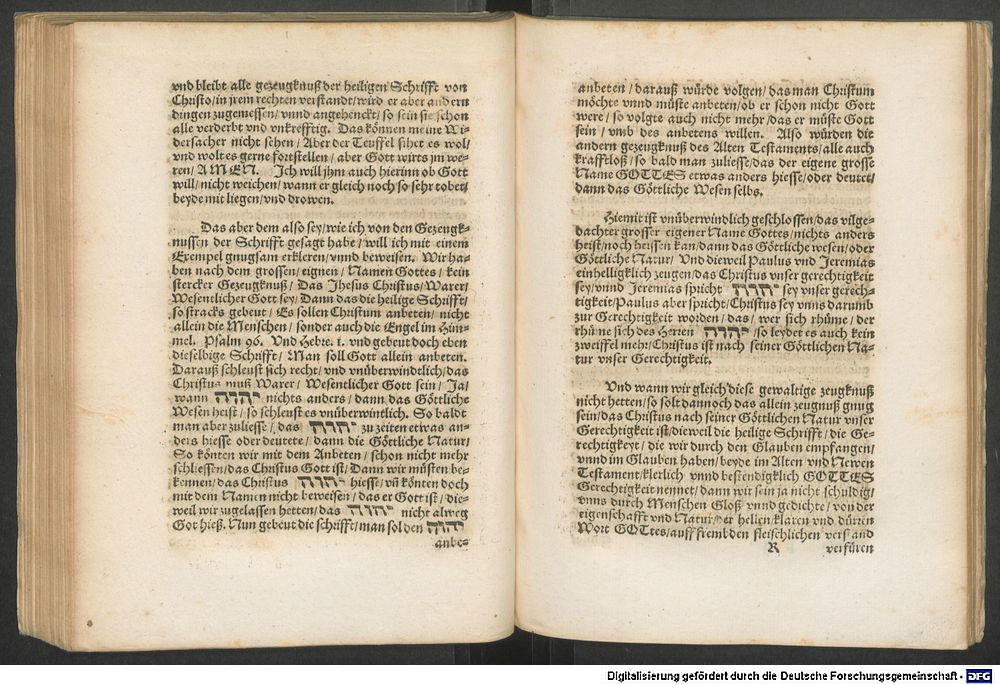 vnd bleibt alle gezeugknuß der heiligen Schrifft von
Christo/in jrem rechten verstandt/wird er aber andern
dingen zugemessen/ vnnd angehenckt/ so sein sie schon
alle verderbt vnd vnkrefftig. Das können meine Wi-
dersacher nicht sehen/ Aber der Teuffel sihet es wol/
vnd wolt es gerne fortstellen/ aber Gott wirts jm we-
ren/ AMEN. Ich will jhm auch hierinn ob Gott
will/ nicht weichen/ wann er gleich noch so sehr tobet/
beyde mit liegen/ vnd drowen.
Das aber dem also sey/ wie ich von den Gezeugk-
nussen der Schrifft gesagt habe/ will ich mit einem
Exempel gnugsam erkleren/ vnnd beweisen. Wir ha-
ben nach dem grossen/ eignen/ Namen Gottes/ kein
stercker Gezeugknuß/ Das Jhesus Christus/ Warer/
Wesentlicher Gott sey/ Dann das die heilige Schrifft/
so stracks gebeut/ Es sollen Christum anbeten/ nicht
allein die Menschen/ sonder auch die Engel im Him-
mel. Psalm 96. Vnd Hebre. 1. vnd gebeut doch eben
dieselbige Schrifft/ Man soll Gott allein anbeten.
Darauß schleust sich recht/ vnd vnüberwindtlich/das
Christus muß Warer/ Wesentlicher Gott sein/ Ja/
wann יהוה nichts anders/ dann das Göttliche
Wesen heist/ so schleust es vnüberwintlich. So baldt
man aber zuliesse/ das יהוה zu zeiten etwas an-
ders hiesse oder deutete/ dann die Göttliche Natur/
So könten wir mit dem Anbeten/ schon nicht mehr
schliessen/das Christus Gott ist/ Dann wir müsten be-
kennen/ das Christus יהוה hiesse/ vñ könten doch
mit dem Namen nicht beweisen/ das er Gott ist/ die-
weil wir zugelassen hetten/ das יהוה nicht alweg
Got hieß. Nun gebeut die schrifft/ man sol den יהוה
anbe-
anbeten/ darauß würde volgen/ das man Christum
möchte vnnd müste anbeten/ob er schon nicht Gott
were/ so volgte auch nicht mehr/das er müste Gott
sein/ vmb des anbetens willen. Also würden die
andern gezeugknuß des Alten Testaments/ alle auch
krafftloß/ so bald man zuliesse/das der eigene grosse
Name GOTTES etwas anders hiesse/oder deutet/
dann das Göttliche Wesen selbs.
Hiemit ist vnüberwindlich geschlossen/das vilge-
dachter grosser eigener Name Gottes/nichts anders
heist/noch heissen kan/dann das Göttliche wesen/oder
Göttliche Natur/ Vnd dieweil Paulus vnd Jeremias
einhelligklich zeugen/das Christus vnser gerechtigkeit
sey/vnnd Jeremias spricht יהוה sey vnser gerech-
tigkeit/Paulus aber spricht/Christus sey vnns darumb
zur Gerechtigkeit worden/ das/ wer sich rhüme/ der
rhüme sich des Herren יהוה /so leydet es auch kein
zweiffel mehr/Christus ist nach seiner Göttlichen Na-
tur vnser Gerechtigkeit.
Vnd wann wir gleich diese gewaltige zeugknuß
nicht hetten/so solt dannoch das allein zeugnuß gnug
sein/das Christus nach seiner Göttlichen Natur vnser
Gerechtigkeit ist/dieweil die heilige Schrifft/ die Ge-
rechtigkeyt/ die wir durch den Glauben empfangen/
vnnd im Glauben haben/ beyde im Alten vnd Newen
Testament/klerlich vnnd bestendigklich GOTTES
Gerechtigkeit nennet/ dann wir sein ja nicht schuldig/
vnns durch Menschen Gloß vnnd gedichte/ von der
eigenschafft vnd Natur/der hellen klaren vnd dürren
Wort GOTtes/auff frembden fleischlichen verstand
R verfüren
Digitalisierung gefördert durch die Deutsche Forschungsgemeinschaft - DFG